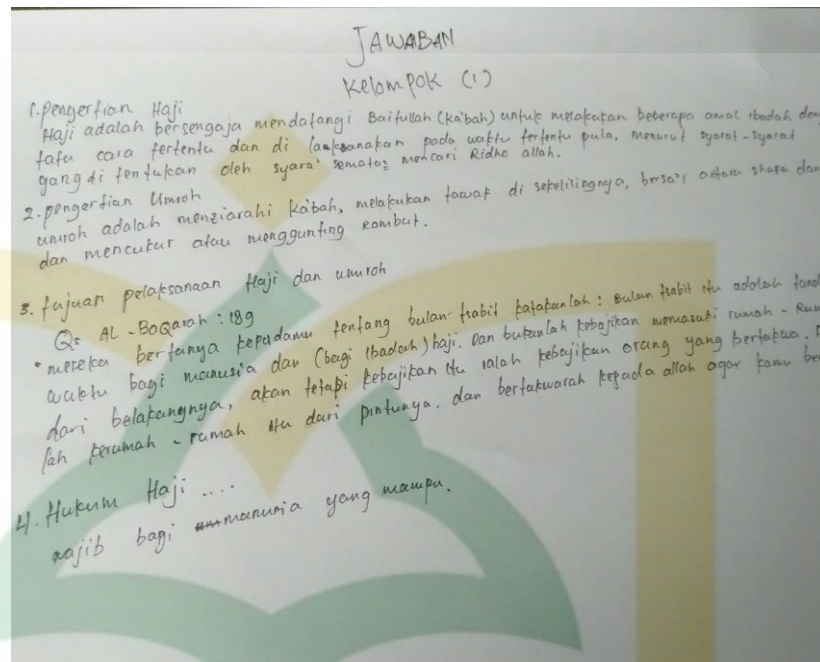 JAWABAN
Kelompok (1)
1. pengertian Haji
Haji adalah bersengaja mendatangi Baitullah (ka'bah) untuk melakukan beberapa amal ibadah den
tata cara tertentu dan di laksanakan pada waktu tertentu pula, menurut syarat-syarat
yang di tentukan oleh syara' semata2 mencari Ridho allah.
2. pengertian Umroh
umroh adalah menziarahi ka'bah, melakukan tawaf di sekelilingnya, bersa'i antara shafa dan
dan mencukur atau menggunting rambut.
3. tujuan pelaksanaan Haji dan umroh
Qs AL-BaQarah : 189
"mereka bertanya kepadamu tentang bulan tsabit katakanlah : Bulan tsabit itu adalah tand
waktu bagi manusia dan (bagi ibadah) haji. Dan bukanlah kebajikan memasuki rumah - Rum
dari belakangnya, akan tetapi kebajikan itu ialah kebajikan orang yang bertakwa.
lah kerumah - rumah itu dari pintunya, dan bertakwarah kepada allah agar kamu be
4. Hukum Haji ....
wajib bagi manusia yang mampu.